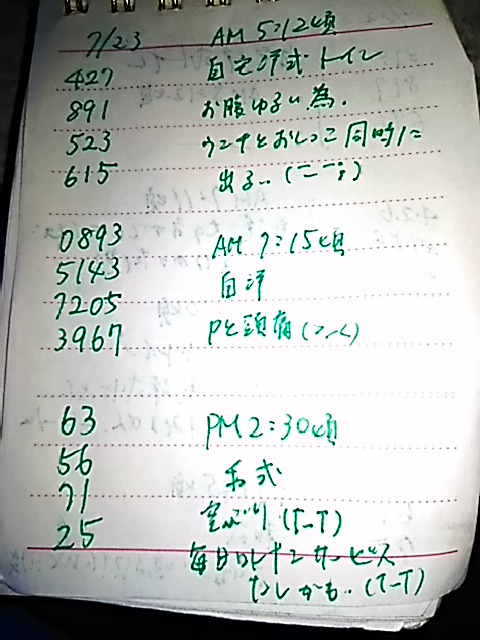 7/23 AM 5:12頃
427 自宅洋式トイレ
891 お腹ゆるい為.
523 ウンチとおしっこ同時に
615 出る..(ーー;)
0893 AM 7:15頃
5143 自洋
7205 Pと頭痛(>_<)
3967
63 PM 2:30頃
56 和式
71 空ぶり(T-T)
25 毎日 サービス
なしかも..(T-T)